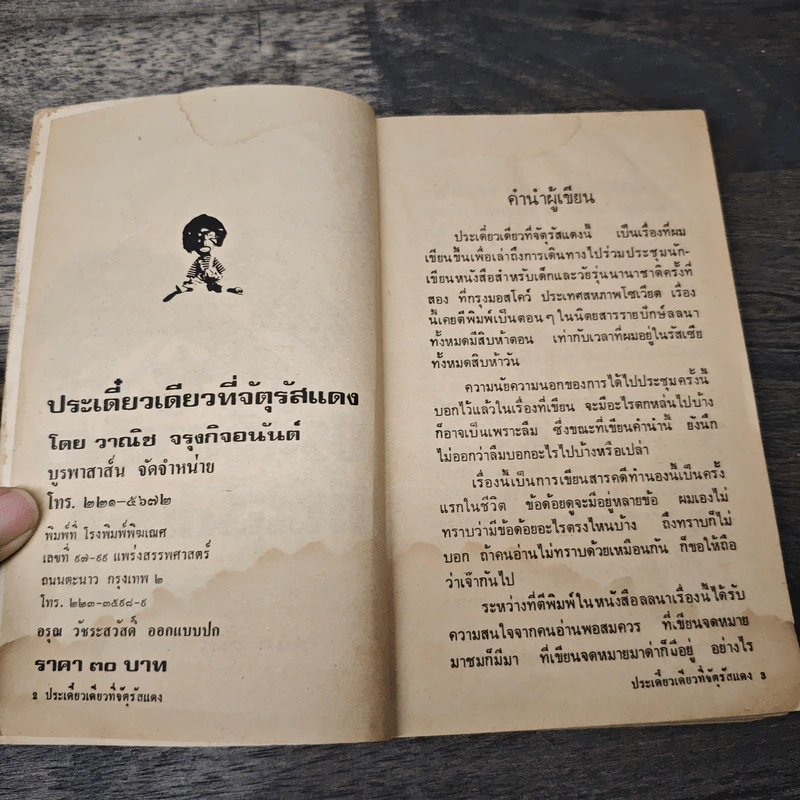 ประเดี๋ยวเดียวที่จัตุรัสแดง
โดย วาณิช จรุงกิจอนันต์
บูรพาสาส์น จัดจำหน่าย
โทร. ๒๒๑-๕๖๗๒
พิมพ์ที่ โรงพิมพ์พิฆเณศ
เลขที่ ๙๗-๙๙ แพร่งสรรพศาสตร์
ถนนตะนาว กรุงเทพ ๒
โทร. ๒๒๓-๓๕๙๘-๙
อรุณ วัชระสวัสดิ์ ออกแบบปก
ราคา ๓๐ บาท
2 ประเดี๋ยวเดียวที่จัตุรัสแดง
คำนำผู้เขียน
ประเดี๋ยวเดียวที่จัตุรัสแดงนี้ เป็นเรื่องที่ผม
เขียนขึ้นเพื่อเล่าถึงการเดินทางไปร่วมประชุมนัก-
เขียนหนังสือสำหรับเด็กและวัยรุ่นนานาชาติครั้งที่
สอง ที่กรุงมอสโคว์ ประเทศสหภาพโซเวียต เรื่อง
นี้เคยตีพิมพ์เป็นตอน ๆ ในนิตยสารรายปักษ์ลลนา
ทั้งหมดมีสิบห้าตอน เท่ากับเวลาที่ผมอยู่ในรัสเซีย
ทั้งหมดสิบห้าวัน
ความนัยความนอกของการได้ไปประชุมครั้งนี้
บอกไว้แล้วในเรื่องที่เขียน จะมีอะไรตกหล่นไปบ้าง
ก็อาจเป็นเพราะลืม ซึ่งขณะที่เขียนคำนำนี้ ยังนึก
ไม่ออกว่าลืมบอกอะไรไปบ้างหรือเปล่า
เรื่องนี้เป็นการเขียนสารคดีทำนองนี้เป็นครั้ง
แรกในชีวิต ข้อด้อยดูจะมีอยู่หลายข้อ ผมเองไม่
ทราบว่ามีข้อด้อยอะไรตรงไหนบ้าง ถึงทราบก็ไม่
บอก ถ้าคนอ่านไม่ทราบด้วยเหมือนกัน ก็ขอให้ถือ
ว่าเจ๊ากันไป
ระหว่างที่ตีพิมพ์ในหนังสือลลนาเรื่องนี้ได้รับ
ความสนใจจากคนอ่านพอสมควร ที่เขียนจดหมาย
มาชมก็มีมา ที่เขียนจดหมายมาด่าก็มีอยู่ อย่างไร
ประเดี๋ยวเดียวที่จัตุรัสแดง 3